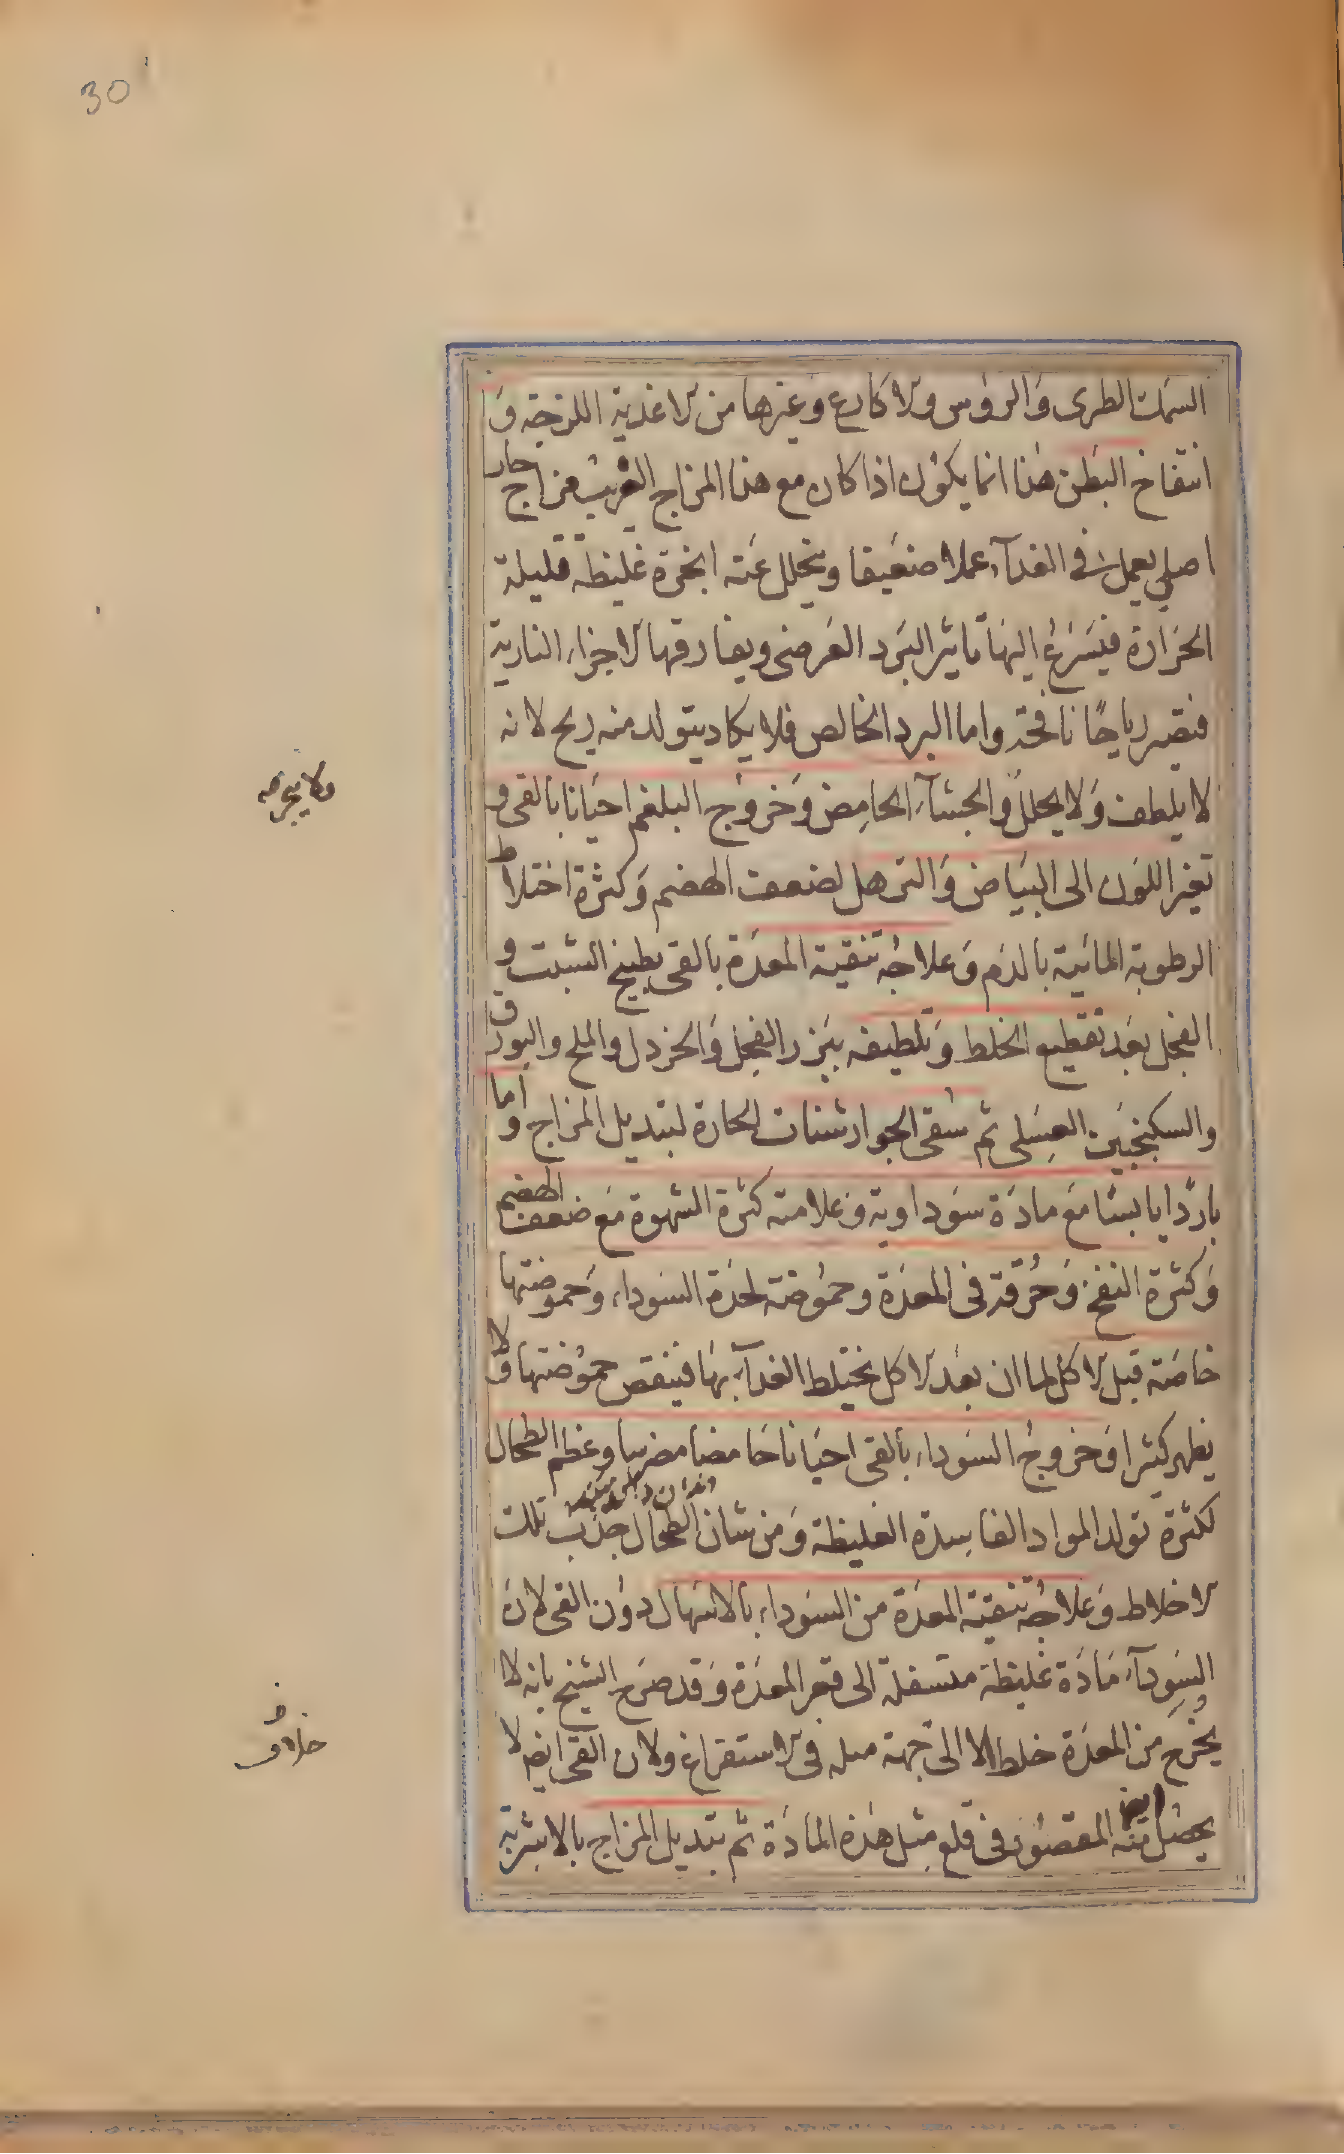 30
السمك الطرى والروس والاكارع وغيرها من الاغذية اللزجة و
انتفاخ البطن هذا انما يكون اذا كان مع هذا المزاج الغريب مزاج حار
اصلى يعمل فى الغدآء عملا ضعيفا ويتحلل عنه ابخرة غليظة قليلة
الحرارة فيسرع اليها تاثير البرد العرضى ويفارقها الاجزاء النارية
فتصير رياحا نافخة واما البرد الخالص فلا يكاد يتولد منه ريح لانه
لا يلطف ولا يحلل والجشآء الحامض وخروج البلغم احيانا بالقى و
تغير اللون الى البياض والترهل لضعف الهضم وكثرة اختلاط
الرطوبة المائية بالدم وعلاجه تنقية المعدة بالقى بطبيخ الشبت و
الفجل بعد تقطيع الخلط وتلطيفه ببزر الفجل والخردل والملح والبورق
والسكنجبين العسلى ثم سقى الجوارشنات الحارة لتبديل المزاج واما
باردا يابسا مع مادة سوداوية وعلامته كثرة الشهوة مع ضعف الهضم
وكثرة النفخ وحرقة فى المعدة وحموضة لحدة السوداء وحموضتها
خاصة قبل الاكل لما ان بعد الاكل يختلط الغدآء بها فينقص حموضتها ولا
يظهر كثيرا وخروج السوداء بالقى احيانا حامضا مضرسا وعظم الطحال
لكثرة تولد المواد الفاسدة الغليظة ومن شان الطحال جذب تلك
الاخلاط وعلاجه تنقية المعدة من السوداء بالاسهال دون القى لان
السودآء مادة غليظة متسفلة الى قعر المعدة وقد صرح الشيخ بانه لا
يخرج من المعدة خلط الا الى جهة ميله فى الاستفراغ ولان القى ايضا لا
يحصل منه المقصود فى قلع مثل هذه المادة ثم بتبديل المزاج بالاشربة
خلاف